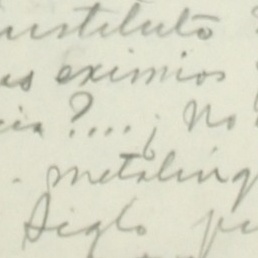 instituto
as eximios
cia?....¡ No
. metaling
Siglo pu